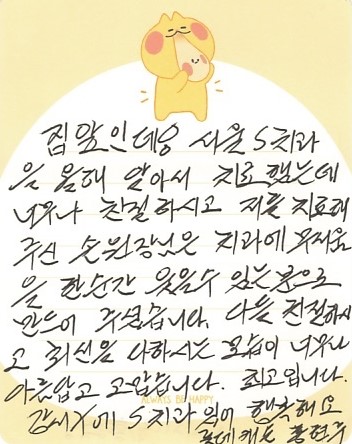 집앞인데요 서울 S치과
을 올해 알아서 치료했는데
너무나 친절하시고 저를 치료해
주신 손원장님은 치과에 무서움
을 한순간 잊을수 있는분으로
만들어 주셨습니다. 다들 친절하시
고 최선을 다하시는 모습이 너무나
아름답고 고맙습니다. 최고입니다.
ALWAYS BE HAPPY
감사 S치과 있어 행복해요